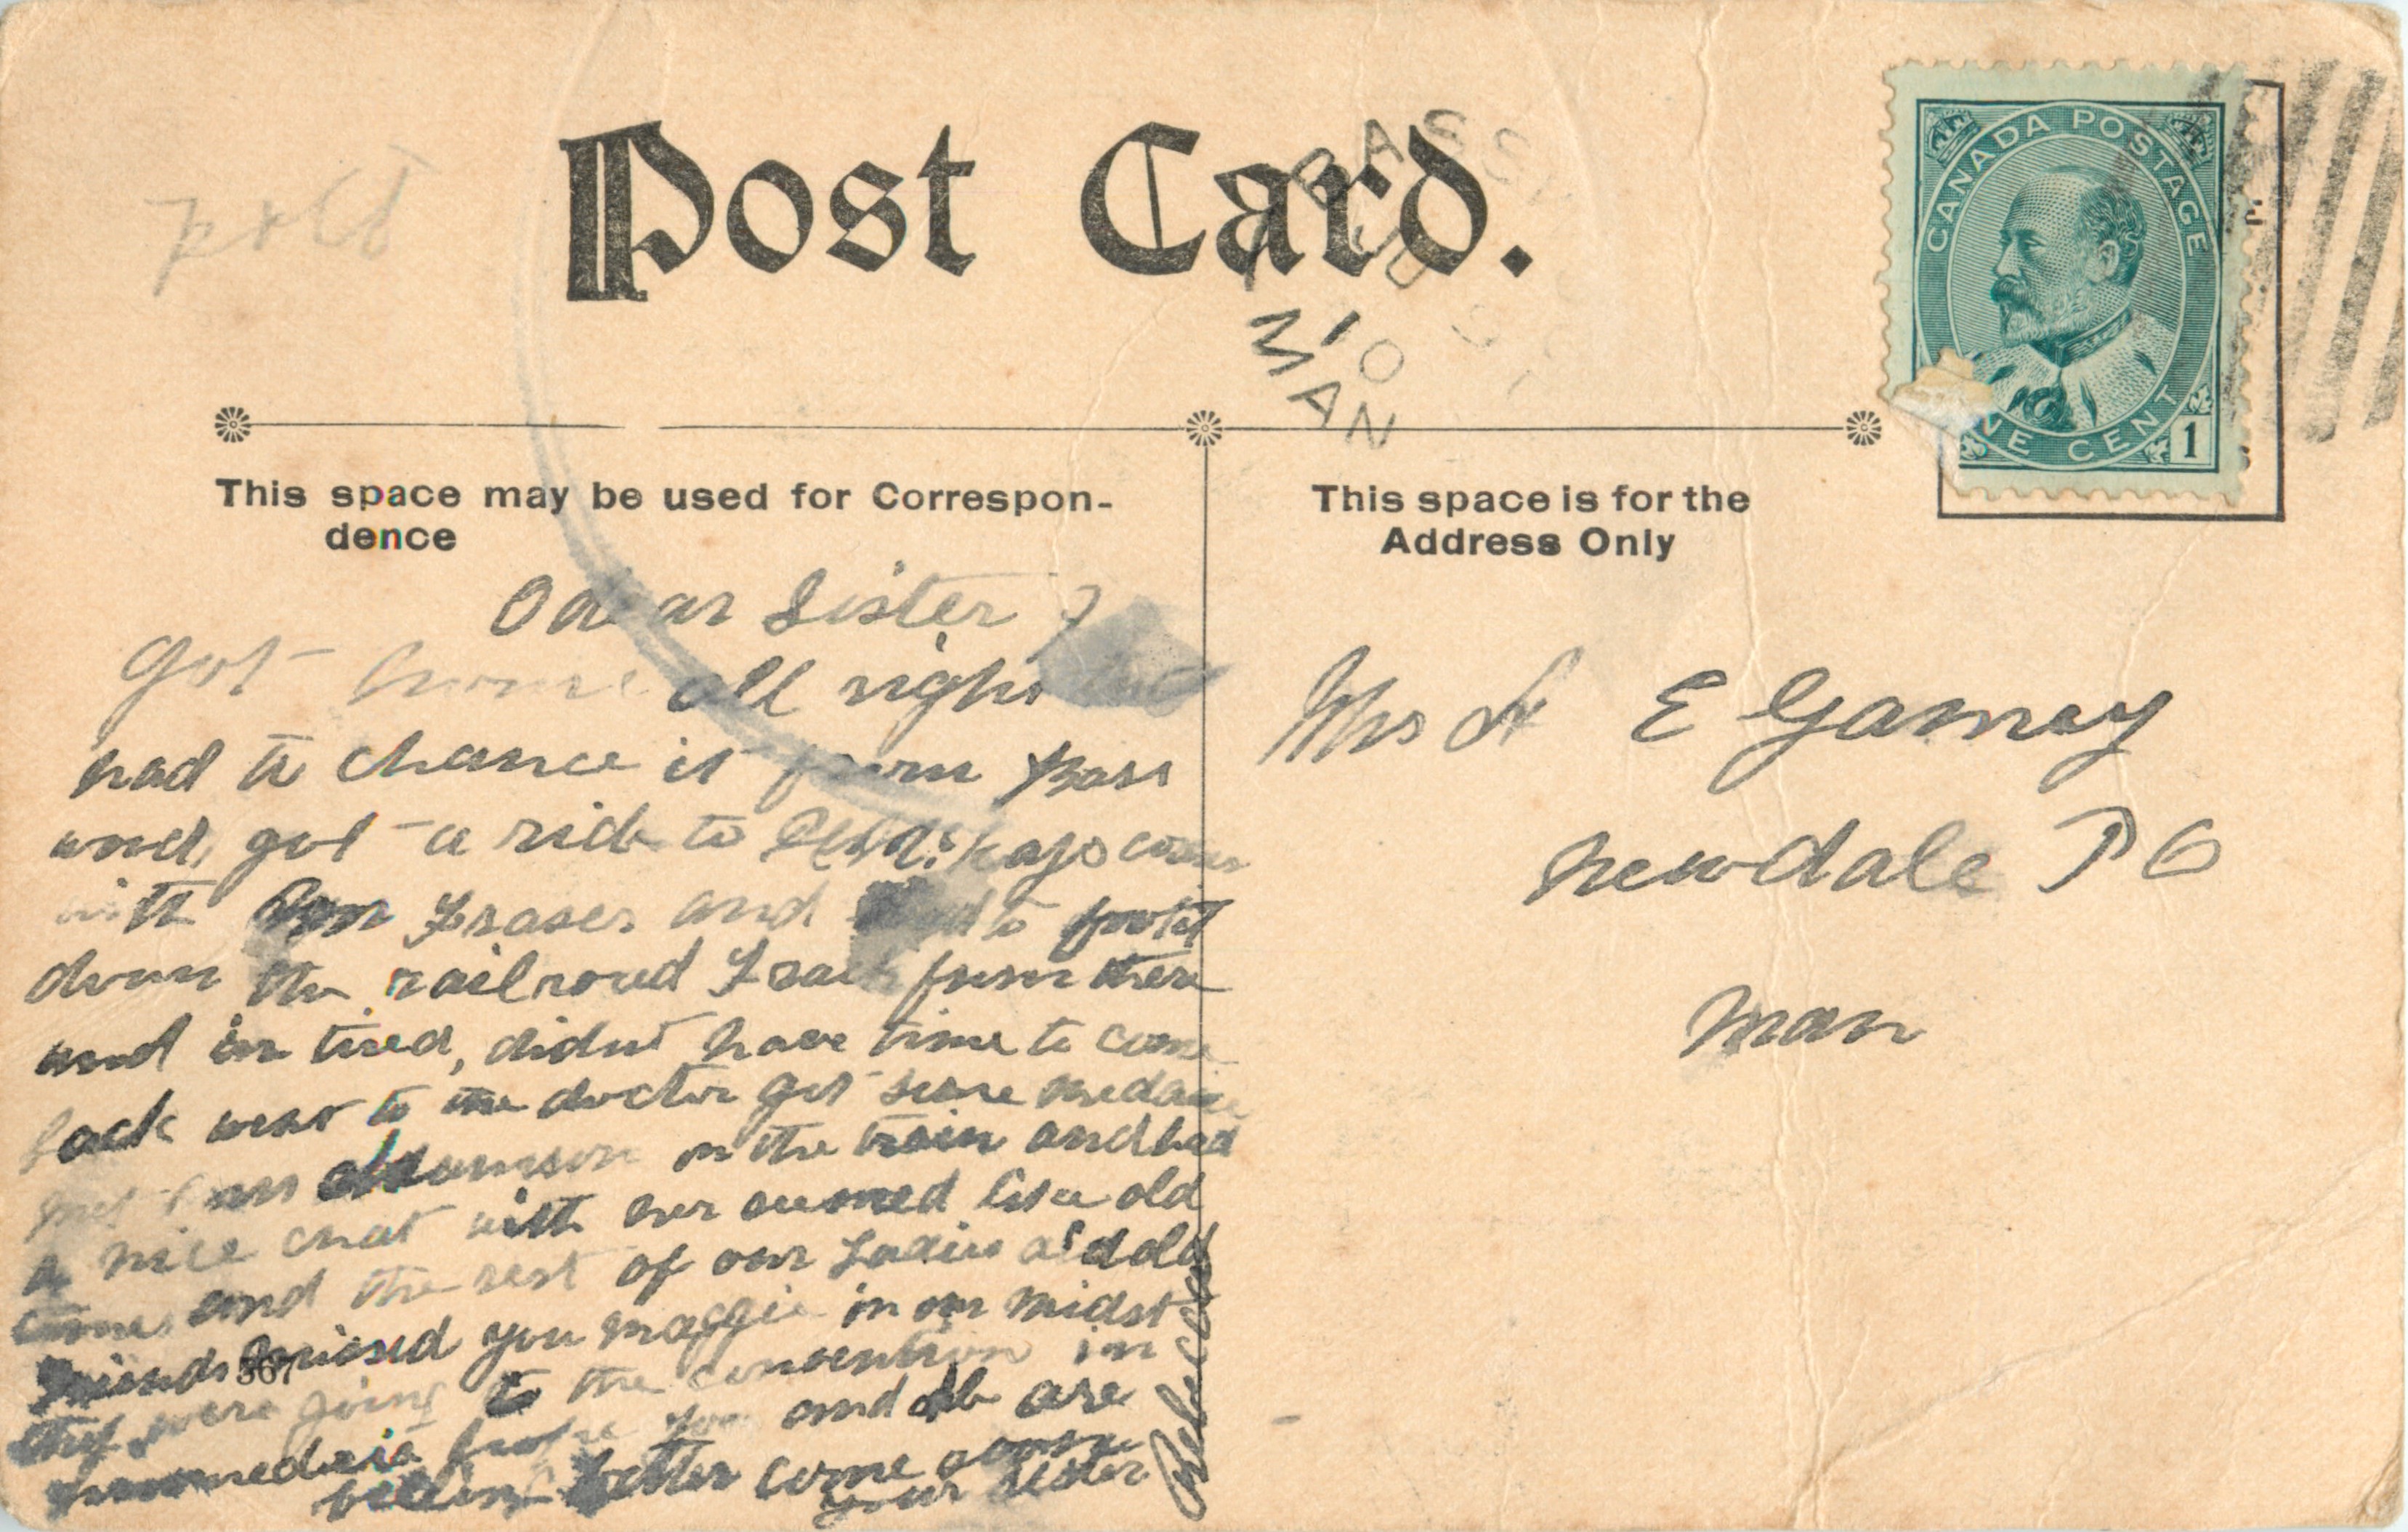 Post Card.
BASS
JU
10
MAN
CANADA POSTAGE
NE CENT
1
This space may be used for Correspon-
dence
This space is for the
Address Only
O dear Sister I
got home all right but
had to chance it from Bass
and, got a ride to
with Fraser and had to foot it
down the railroad Track from there
and im tired, didnt have time to come
back went to the doctor got some
met on the train and had
a nice chat with her seemed like old
times and the rest of our Ladies aid old
friends missed you maggie in our midst
they were going to the convention in
hope you and are
feeling better come
your sister
Rebecca
567
Mrs A E Gamey
Newdale P O
Man